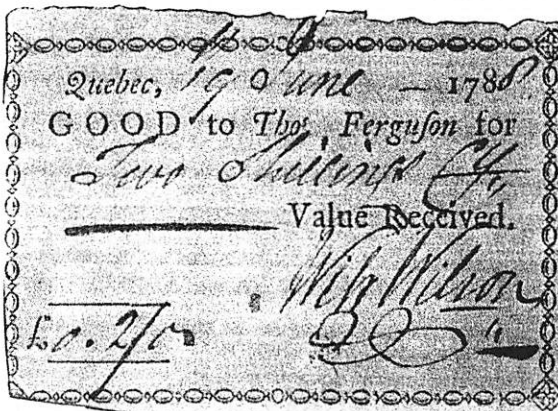 Quebec, 19 June – 1788
GOOD to Thoˢ. Ferguſon for
Two Shillings Cy
Value Received.
Wilson
£0.2/0